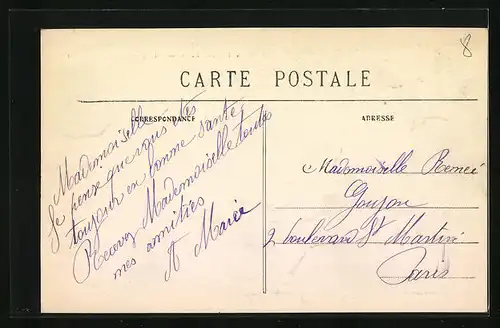 8
CARTE POSTALE
CORRESPONDANCE
ADRESSE
Mademoiselle
Je pense que vous êtes
toujours en bonne santé
Recevez Mademoiselle toutes
mes amitiés
A Marie
Mademoiselle Renée
Goujon
2 boulevard St Martin
Paris